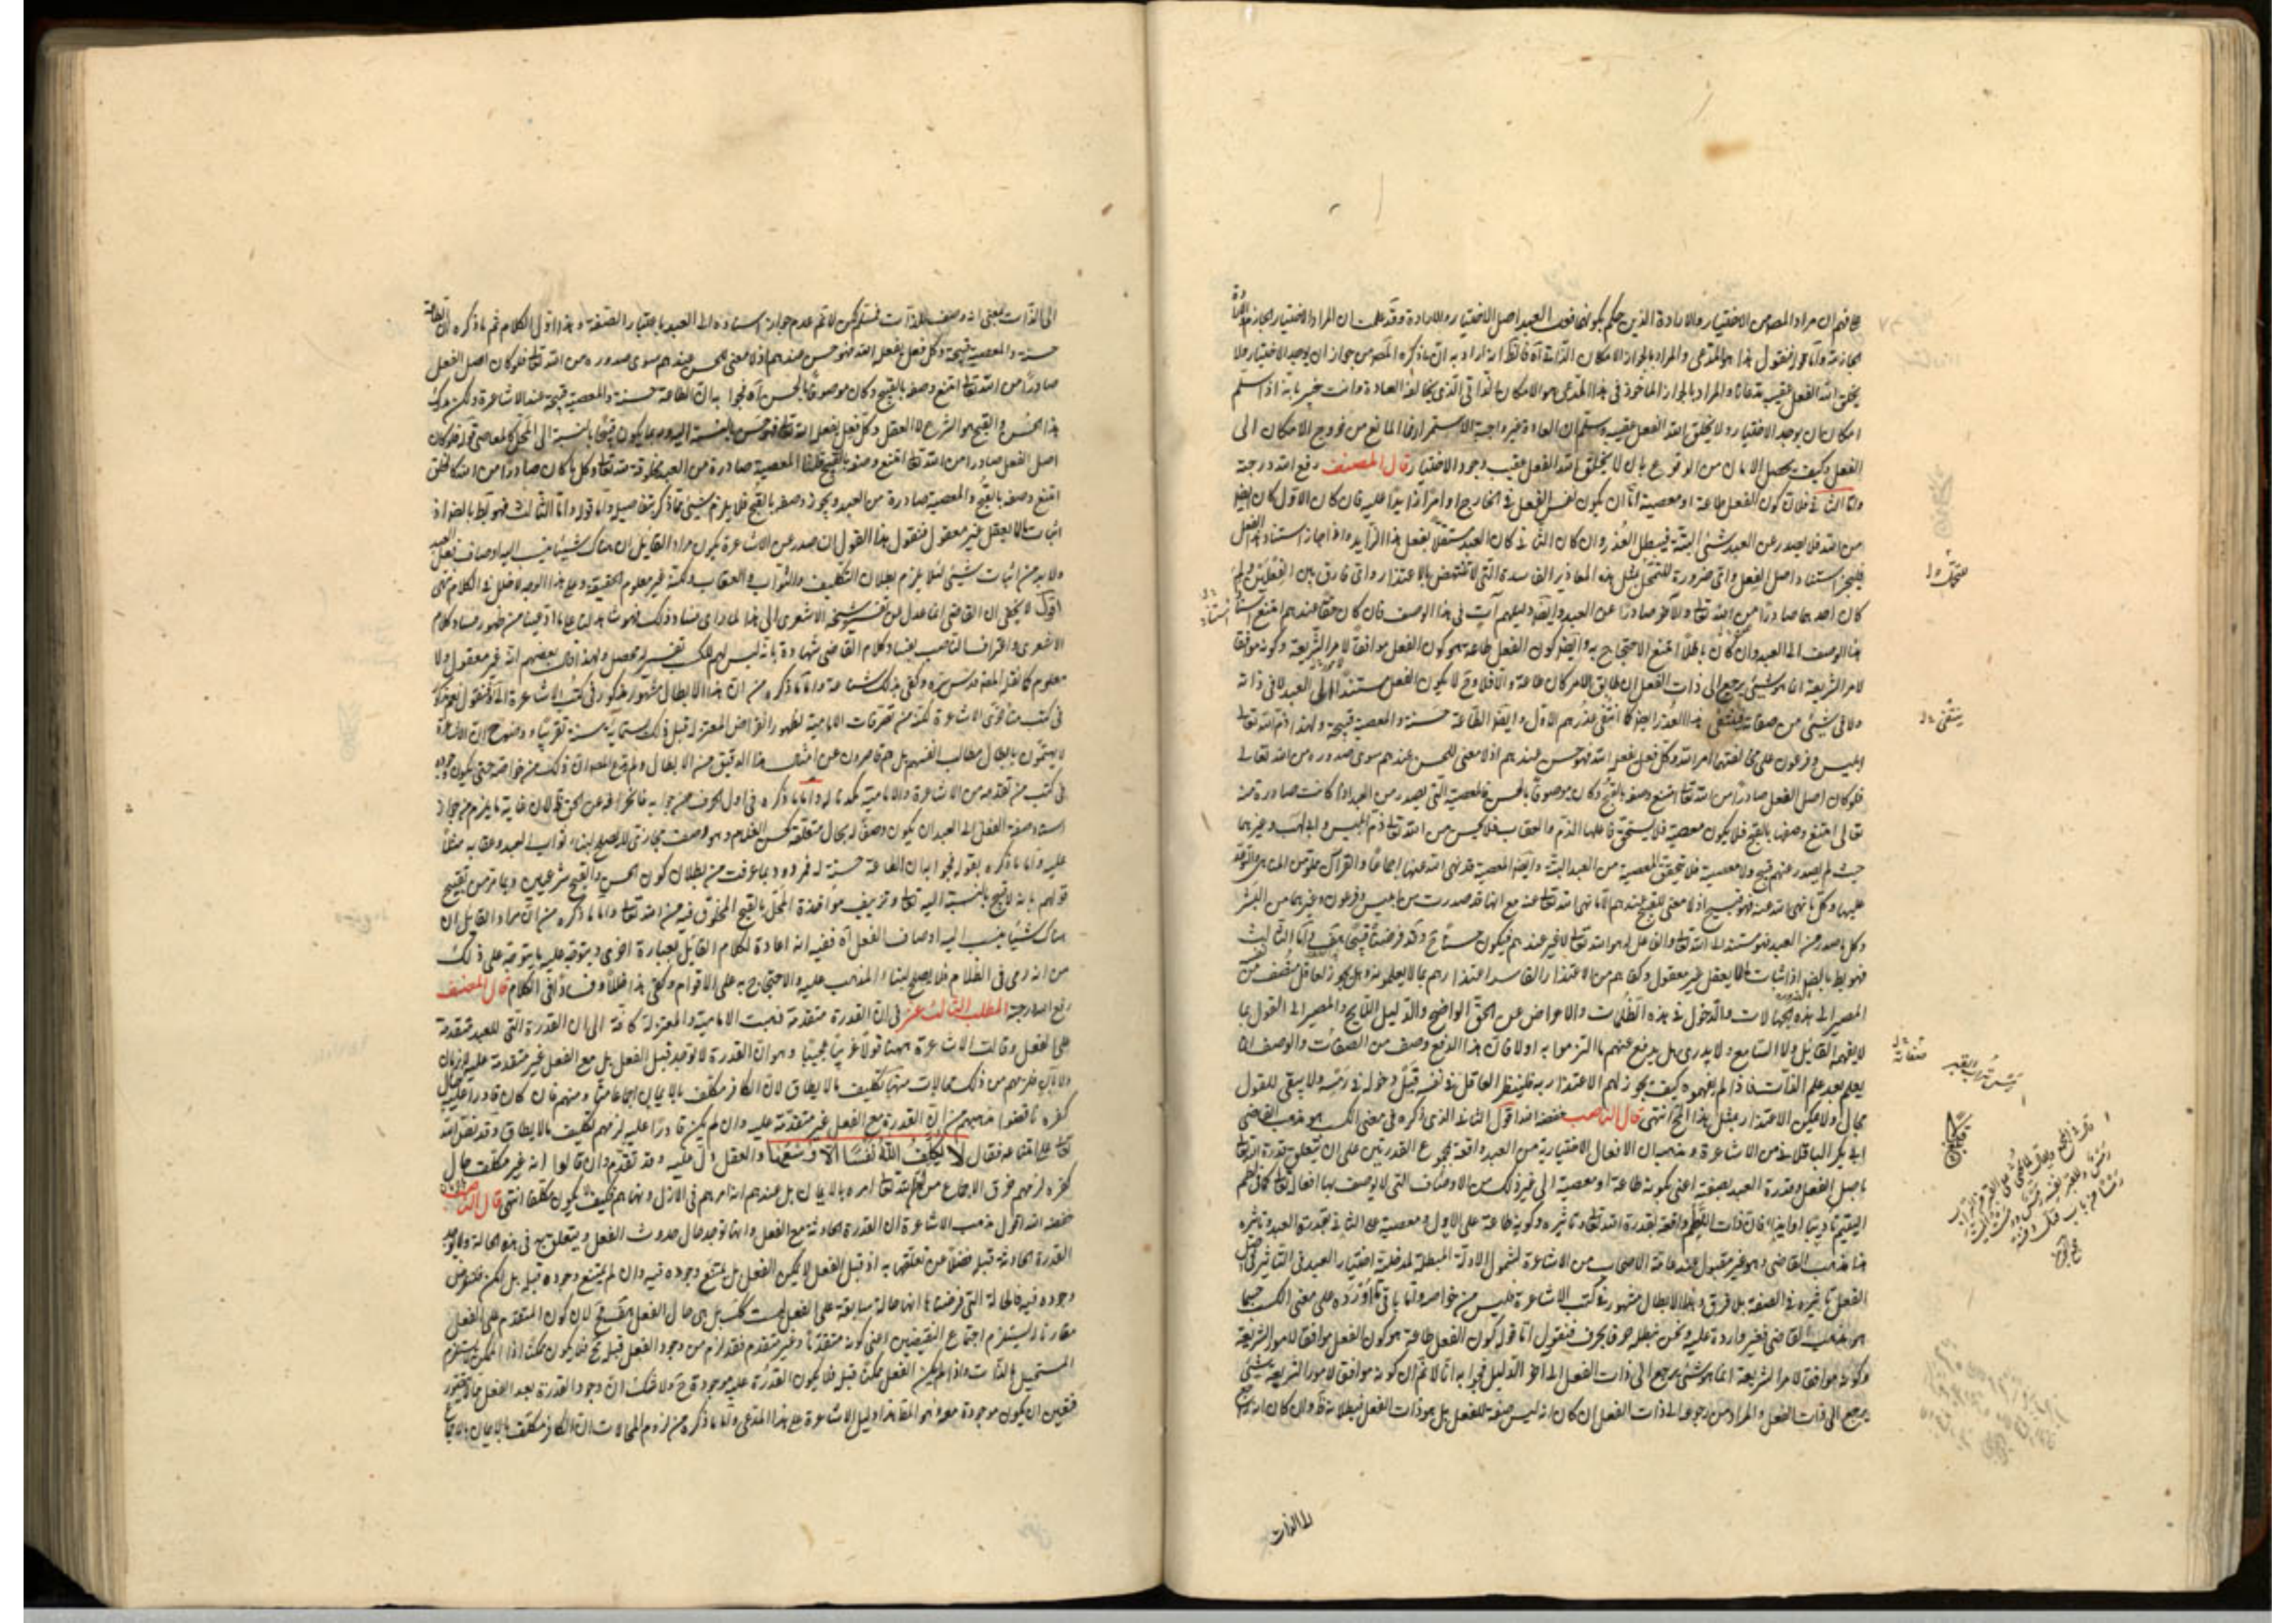 فافهم ان مراد المصنف من الاختيار والارادة الذين حكم بكونهما فعل العبد اصل الاختيار والارادة وقد علمت ان المراد الاختيار الجازم والارادة
الجازمة واما جوابه فنقول هذا هو المدعى والمراد بالجواز الامكان الذاتي آه فالظاهر انه اراد به ان ما ذكره المصنف من جواز ان يوجد الاختيار ولا
يخلق الله الفعل عقيبه تدفعه والمراد بالجواز الماخوذ في هذا المدعى هو الامكان الذاتي الذي يخالفه العادة وانت خبير بانه اذا سلم
امكان ان يوجد الاختيار ولا يخلق الله الفعل عقيبه وسلم ان العادة غير واجبة الاستمرار فما المانع من خروج الامكان الى
الفعل وكيف يحصل الامان من الوقوع بان لا يخلق الله الفعل عقيب وجود الاختيار قال المصنف رفع الله درجته
واما الثاني فلان كون الفعل طاعة او معصية اما ان يكون نفس الفعل في الخارج او امرا زائدا عليه فان كان الاول كان ايضا
من الله فلا يصدر عن العبد شيء البتة فيبطل العذر وان كان الثاني كان العبد مستقلا بفعل هذا الزائد واذا جاز استناد هذا الفعل
فليجز استناد اصل الفعل واي ضرورة للتمحل بمثل هذه المعاذير الفاسدة التي لا تنتهض بالاعتذار واي فارق بين الفعلين ولم
كان احدهما صادرا من الله تعالى والآخر صادرا عن العبد وايضا دليلهم آت في هذا الوصف فان كان حقا عندهم امتنع استناد
هذا الوصف الى العبد وان كان باطلا امتنع الاحتجاج به وايضا كون الفعل طاعة هو كون الفعل موافقا لامر الشريعة وكونه موافقا
لامر الشريعة انما هو شيء يرجع الى ذات الفعل ان طابق الامر كان طاعة والا فلا وح لا يكون الفعل مستندا الى العبد لا في ذاته
ولا في شيء من صفاته فينتفي هذا العذر ايضا كما انتفى عذرهم الاول وايضا الطاعة حسنة والمعصية قبيحة ولهذا ذم الله تعالى
ابليس وفرعون على مخالفتهما امر الله وكل فعل يفعله الله فهو حسن عندهم اذ لا معنى للحسن عندهم سوى صدوره من الله تعالى
فلو كان اصل الفعل صادرا من الله تعالى امتنع وصفه بالقبح وكان موصوفا بالحسن فالمعصية التي يصدر من العبد اذا كانت صادرة منه
تعالى امتنع وصفها بالقبح فلا يكون معصية فلا يستحق فاعلها الذم والعقاب فلا يحسن من الله تعالى ذم ابليس وابي لهب وغيرهما
حيث لم يصدر عنهم قبيح ولا معصية فلا يتحقق المعصية من العبد البتة وايضا المعصية قد نهى الله عنها اجماعا والقرآن مملو من المناهي والتوعد
عليها وكل ما نهى الله عنه فهو قبيح اذ لا معنى للقبيح عندهم الا ما نهى الله تعالى عنه مع انها قد صدرت من ابليس وفرعون وغيرهما من البشر
وكل ما صدر من العبد فهو مستند الى الله تعالى والفاعل له هو الله تعالى لا غير عندهم فيكون حسنا ح وقد فرضناه قبيحا هف واما الثالث
فهو باطل بالضرورة اذ اثبات ما لا يعقل غير معقول وكفاهم من الاعتذار الفاسد اعتذارهم بما لا يعلمونه وهل يجوز لعاقل منصف من نفسه
المصير الى هذه الجهالات والدخول في هذه الظلمات والاعراض عن الحق الواضح والدليل اللايح والمصير الى القول بما
لا يفهمه القائل ولا السامع ولا يدري هل يدفع عنهم ما التزموا به اولا فان هذا الدفع وصف من الصفات والوصف انما
يعلم بعد علم الذات فاذا لم يفهموه كيف يجوز لهم الاعتذار به فلينظر العاقل في نفسه قبل دخوله في رمسه ولا يبقى للقول
مجال ولا يمكن الاعتذار بمثل هذا المحال انتهى قال الناصب خفضه الله اقول الثاني الذي ذكره في معنى الكسب هو مذهب القاضي
ابي بكر الباقلاني من الاشاعرة ومذهبه ان الافعال الاختيارية من العبد واقعة بمجموع القدرتين على ان تتعلق قدرة الله تعالى
باصل الفعل وقدرة العبد بصفته اعني بكونه طاعة او معصية الى غير ذلك من الاوصاف التي لا يوصف بها افعاله تعالى كما في لطم
اليتيم تاديبا او ايذاء فان ذات اللطم واقعة بقدرة الله تعالى وتاثيره وكونه طاعة على الاول ومعصية على الثاني بقدرة العبد وتاثيره
هذا مذهب القاضي وهو غير مقبول عند عامة الاصحاب من الاشاعرة لشمول الادلة المبطلة لمدخلية اختيار العبد في التاثير في اصل
الفعل تاثيره في الصفة بلا فرق وهذا الابطال مشهور في كتب الاشاعرة فليس من خواصه واما باقي ما اورده على معنى الكسب حسبما
هو مذهب القاضي فغير واردة عليه ونحن نبطله حرفا بحرف فنقول اما قوله كون الفعل طاعة هو كون الفعل موافقا لامر الشريعة
وكونه موافقا لامر الشريعة انما هو شيء يرجع الى ذات الفعل الى آخر الدليل فجوابه انا لا نم ان كونه موافقا لامر الشريعة شيء
يرجع الى ذات الفعل والمراد من رجوعه الى ذات الفعل ان كان انه ليس صفة للفعل بل هو ذات الفعل فبطلانه ظاهر وان كان انه راجع
الى الذات
الى الذات بمعنى انه وصف للذات فمسلم لكن لا نم عدم جواز اسناده الى العبد باعتبار الصفة وهذا اول الكلام ثم ما ذكره ان الطاعة
حسنة والمعصية قبيحة وكل فعل يفعله الله فهو حسن عندهم اذ لا معنى للحسن عندهم سوى صدوره من الله تعالى فلو كان اصل الفعل
صادرا من الله تعالى امتنع وصفه بالقبح وكان موصوفا بالحسن آه فجوابه ان الطاعة حسنة والمعصية قبيحة عند الاشاعرة ولكن مدرك
هذا الحسن والقبح هو الشرع لا العقل وكل فعل يفعل الله تعالى فهو حسن بالنسبة اليه وربما يكون قبيحا بالنسبة الى المحل كالمعاصي قوله فلو كان
اصل الفعل صادرا من الله تعالى امتنع وصفه بالقبح قلنا المعصية صادرة من العبد مخلوقة لله تعالى وكل ما كان صادرا من الله كالخلق
امتنع وصفه بالقبح والمعصية صادرة من العبد ويجوز وصفه بالقبح فلا يلزم شيء مما ذكر تفاصيله واما قوله واما الثالث فهو باطل بالضرورة اذ
اثبات ما لا يعقل غير معقول فنقول هذا القول ان صدر عن الاشاعرة يكون مراد القائل ان هناك شيئا ينسب اليه اوصاف فعل العبد
ولا بد من اثبات شيء لئلا يلزم بطلان التكليف والثواب والعقاب ولكنه غير معلوم الحقيقة وعلى هذا الوجه لا خلل في الكلام انتهى
اقول لا يخفى ان القاضي انما عدل من تفسير شيخه الاشعري الى هذا لما راى فساد ذلك فهو شاهد لنا على ما ادعينا من ظهور فساد كلام
الاشعري واعتراف الناصب بفساد كلام القاضي شهادة بانه ليس لهم للكسب تفسير له محصل ولهذا قال بعضهم انه غير معقول ولا
معلوم كما نقله المصنف قدس سره وكفى بذلك شناعة واما ما ذكره من ان هذا الابطال مشهور مذكور في كتب الاشاعرة
في كتب متاخري الاشاعرة لكنه من تصرفات الامامية
لا يهتمون بابطال مطالب انفسهم بل هم قاصرون عن امثال هذا الدقيق من الابطال ولم يدع المصنف ان ذلك من خواصه حتى يكون وجوده
في كتب من تقدمه من الاشاعرة والامامية مكذبا له واما ما ذكره في اول الحرف من جوابه فانحرافه عن الحق ظاهر لان غاية ما يلزم من جواز
اسناد صفة الفعل الى العبد ان يكون وصفا له بحال متعلقه كحسن الغلام وهو وصف مجازي لا يصلح لبناء ثواب العبد وعقابه مثلا
عليه واما ما ذكره بقوله فجوابه ان الطاعة حسنة آه فمردود بما عرفت من بطلان كون الحسن والقبح شرعيين وبما مر من تقبيح
قولهم بانه لا قبيح بالنسبة اليه تعالى وتزييف مؤاخذة المحل بالقبح المخلوق فيه من الله تعالى واما ما ذكره من ان مراد القائل ان
هناك شيئا ينسب اليه اوصاف الفعل آه ففيه انه اعادة لكلام القائل بعبارة اخرى ويتوجه عليه ما يتوجه على ذلك
من انه رمي في الظلام فلا يصلح لبناء المذهب عليه والاحتجاج به على الاقوام وكفى بهذا خللا وفسادا في الكلام قال المصنف
رفع الله درجته المطلب الثالث عشر في ان القدرة متقدمة ذهبت الامامية والمعتزلة كافة الى ان القدرة التي للعبد متقدمة
على الفعل وقالت الاشاعرة ههنا قولا غريبا عجيبا وهو ان القدرة لا توجد قبل الفعل بل مع الفعل غير متقدمة عليه لا بزمان
ولا بآن فلزمهم من ذلك محالات منها تكليف ما لا يطاق لان الكافر مكلف بالايمان اجماعا منا ومنهم فان كان قادرا عليه حال
كفره ناقضوا مذهبهم من ان القدرة مع الفعل غير متقدمة عليه وان لم يكن قادرا عليه لزمهم تكليف ما لا يطاق وقد نص الله
تعالى على امتناعه فقال لَا يُكَلِّفُ اللَّهُ نَفْسًا إِلَّا وُسْعَهَا والعقل دل عليه وقد تقدم وان قالوا انه غير مكلف حال
كفره لزمهم خرق الاجماع من ان الله تعالى امره بالايمان بل عندهم انه امرهم في الازل ونهاهم فكيف لا يكون مكلفا انتهى قال الناصب
خفضه الله اقول مذهب الاشاعرة ان القدرة الحادثة مع الفعل وانها توجد حال حدوث الفعل ويتعلق به في هذه الحالة ولا يوجد
القدرة الحادثة قبله فضلا من تعلقها به اذ قبل الفعل لا يمكن الفعل بل يمتنع وجوده فيه وان لم يمتنع وجوده قبله بل امكن فلنفرض
وجوده فيه فالحالة التي فرضناها انها حالة سابقة على الفعل ليست كذلك بل هي حال الفعل هف لان كون المتقدم على الفعل
مقارنا يستلزم اجتماع النقيضين اعني كونه متقدما وغير متقدم فقد لزم من وجود الفعل قبله مح فلا يكون ممكنا اذ الممكن لا يستلزم
المستحيل بالذات واذا لم يكن الفعل ممكنا قبله فلا يكون القدرة عليه موجودة ح ولا شك ان وجود القدرة بعد الفعل مما لا يتصور
فتعين ان يكون موجودة معه وهو المط هذا دليل الاشاعرة على هذا المدعى واما ما ذكره من لزوم المحالات ان الكافر مكلف بالايمان بالاجماع